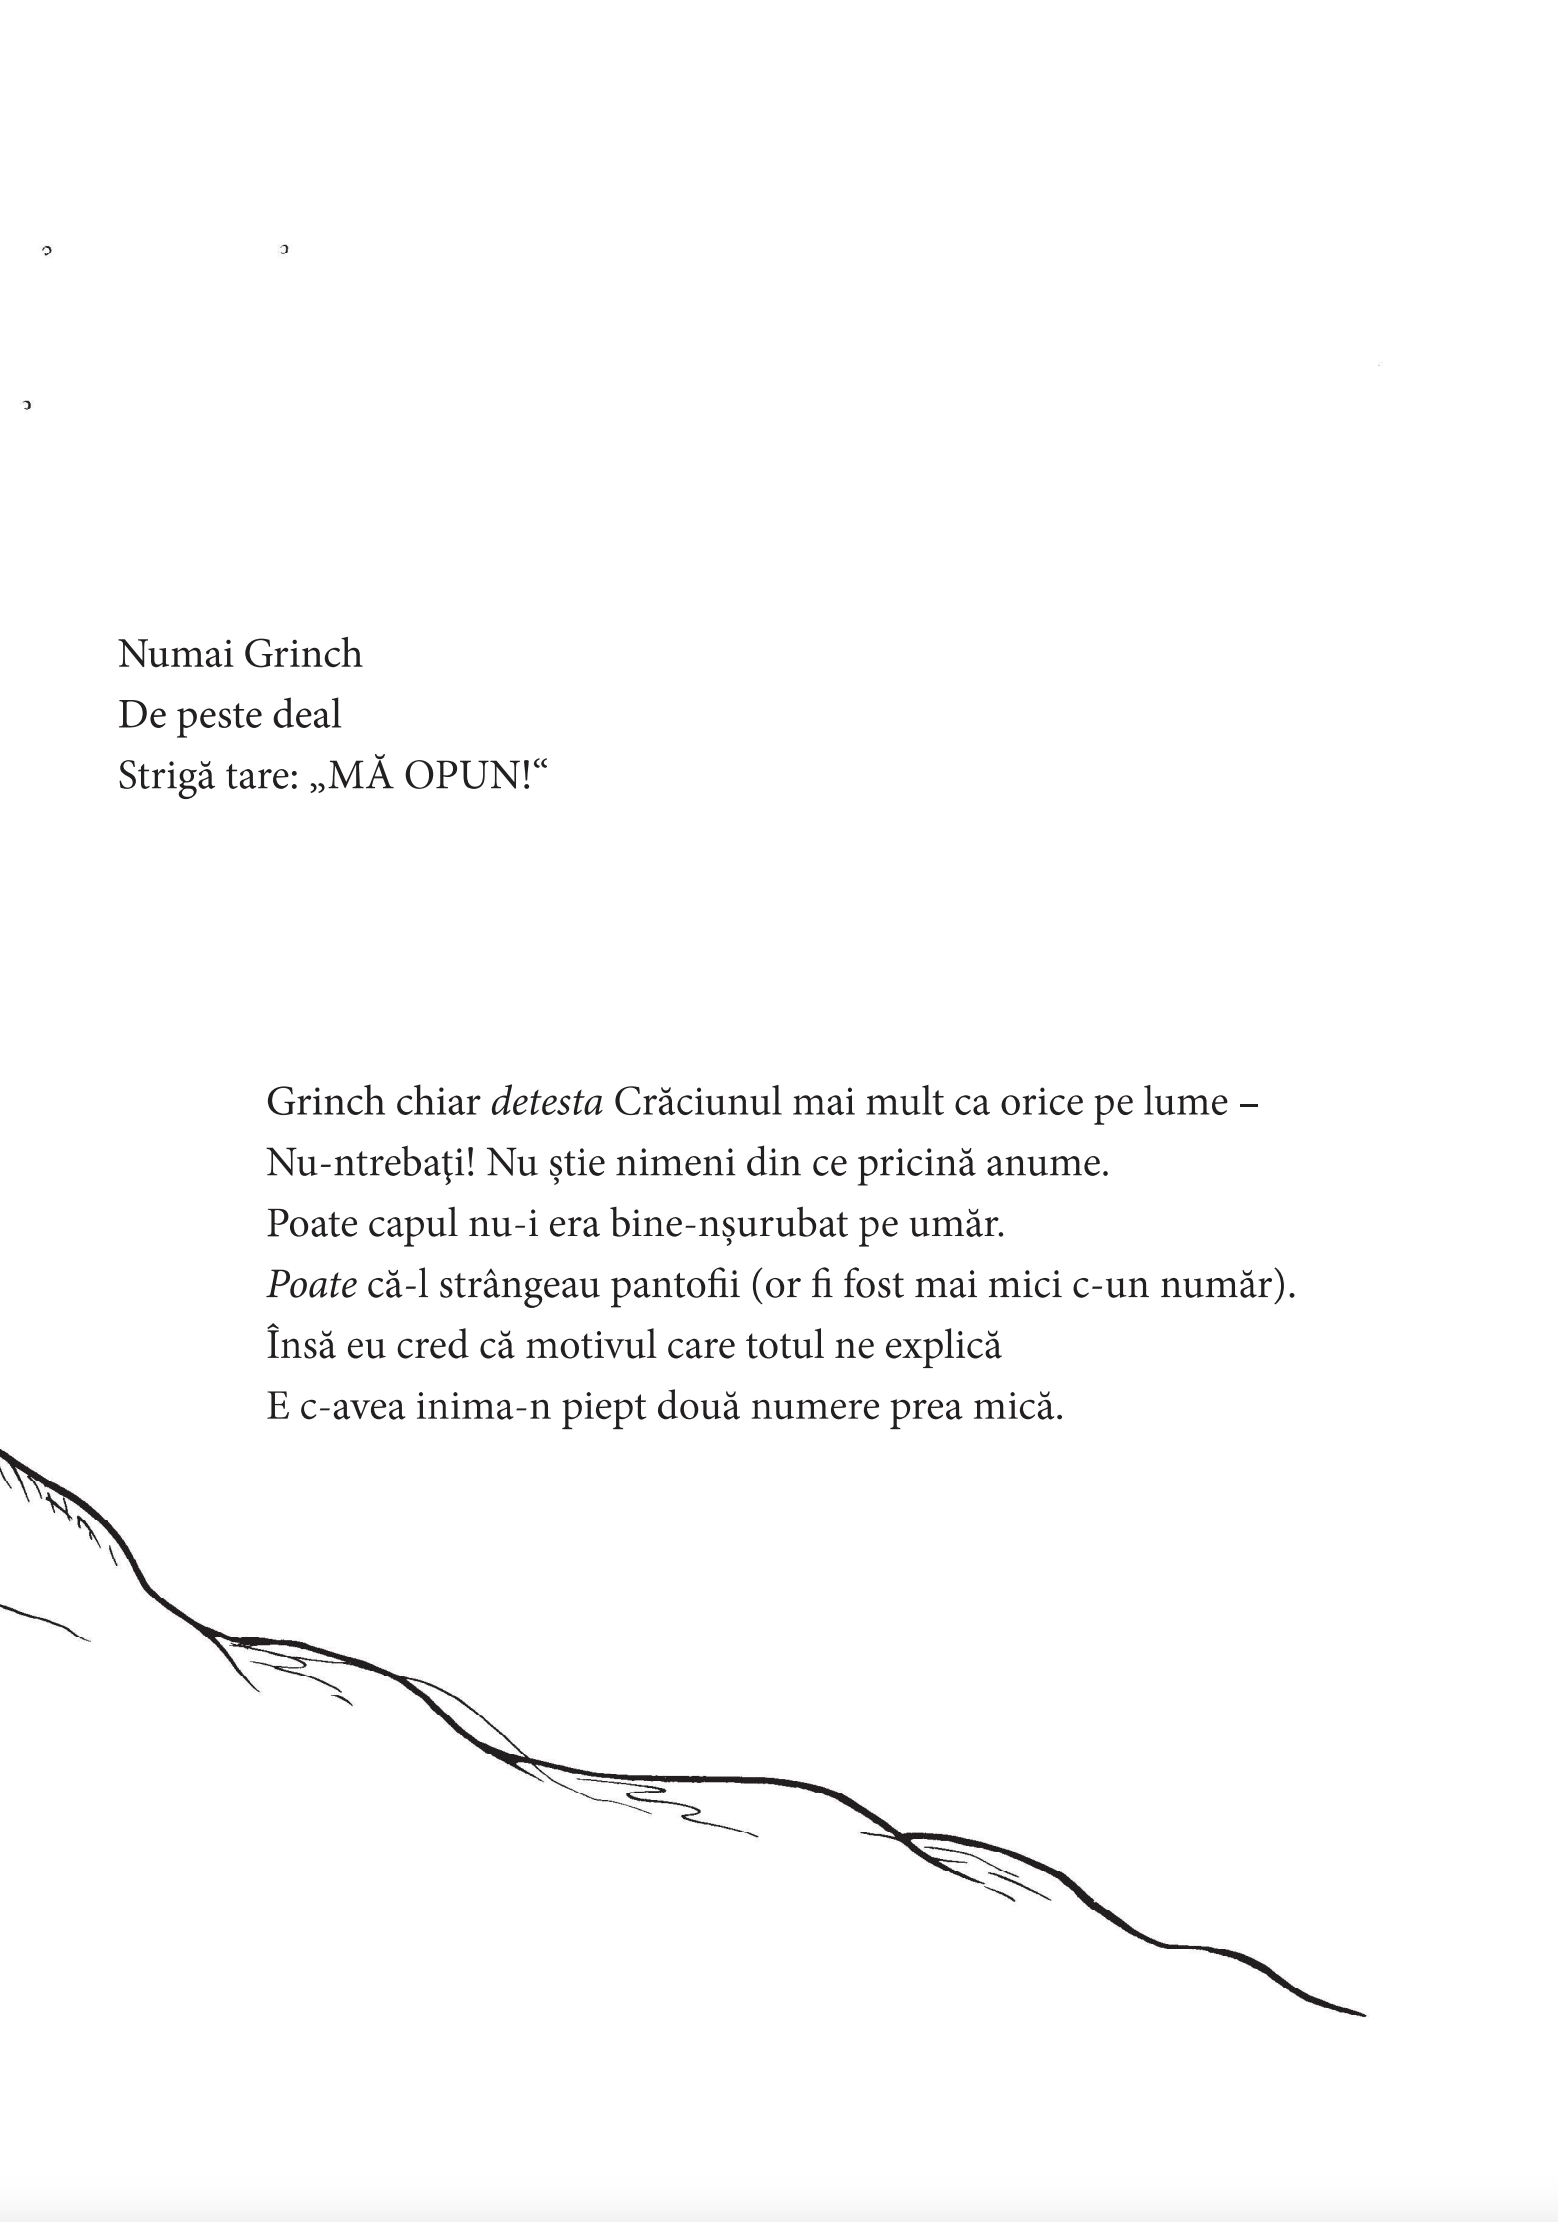 Numai Grinch
De peste deal
Strigă tare: „MĂ OPUN!“
Grinch chiar detesta Crăciunul mai mult ca orice pe lume –
Nu-ntrebaţi! Nu știe nimeni din ce pricină anume.
Poate capul nu-i era bine-nșurubat pe umăr.
Poate că-l strângeau pantofii (or fi fost mai mici c-un număr).
Însă eu cred că motivul care totul ne explică
E c-avea inima-n piept două numere prea mică.